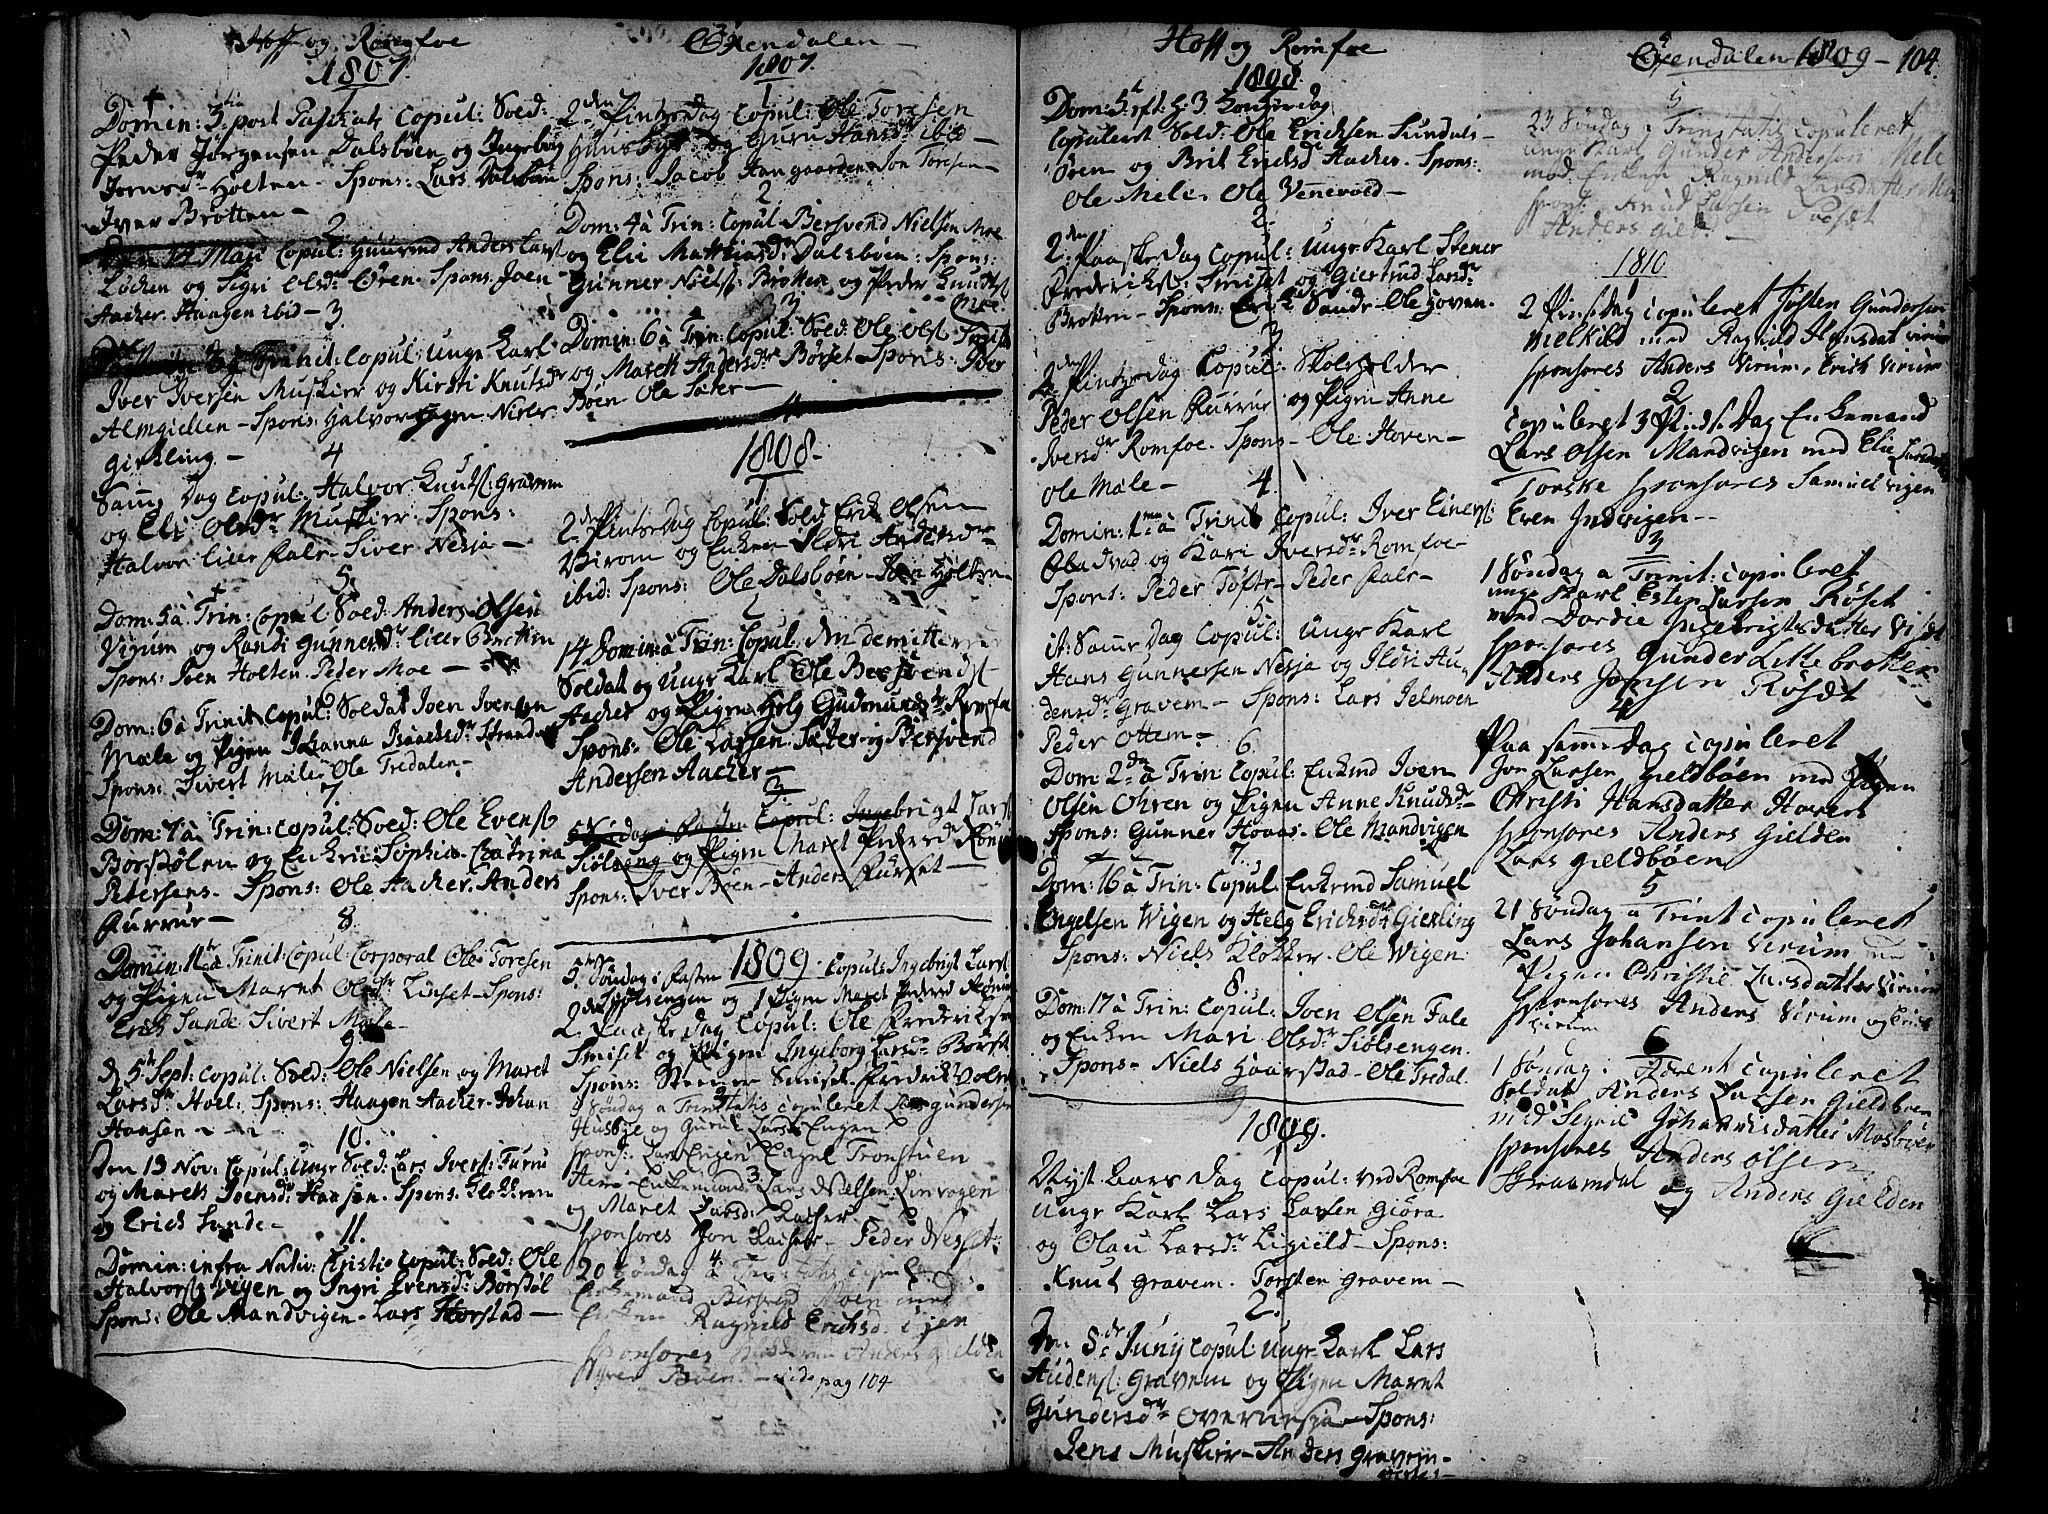 Hoff og Romfoe
1807.
1
Domin: 3tia post Paschat: Copul: Sold:
Peder Jørgensen Dalsbøen og Ingebor
Jornsdr Holten - Spons: Lars Dalsbøen
Iver Brotten -
2
Den 14 Maji Copul: Anders Larst
Løchen og Sigri Olsdr Øren. Spons: Joen
Aacher. Haagen ibid - 3
Trinit: Copul: Unge Karl
Iver Iversen Muskier og Kirsti Knutsdr
Almgiellen - Spons: Halvor Niels
Girkling -
4
Samme Dag Copul: Halvor Knuts: Gravem
og Eli Olsdr Muskier. Spons:
Halvor Fale - Siver Nesja -
5.
Dom: 5 à Trin: Copul: Sold: Anders Olsen
Virum og Randi Gunnersdr Brotten
Spons: Joen Holten. Peder Moe -
6
Dom: 6 à Trinit: Copul: Soldat Joen Joensen
Mæle og Pigen Johanna Isachsdr Strand
Spons: Sivert Mæle Ole Tredalen -
7.
Dom: 7 à Trin: Copul: Sold: Ole Evenst
Borstølen og Enken Sophia Chatrina
Petersens - Spons: Ole Aacher. Anders
Furrue -
8.
Domin: à Trinit: Copul: Corporal Ole Toresen
og Pigen Maret Olsdr Linset - Spons:
Erich Sande. Sivert Mæle -
9
d 5te Sept: Copul: Sold: Ole Nielsen og Maret
Larsdr Hoel: Spons: Haagen Aacher. Johan
Hansen -
10.
Den 13 Nov: Copul: Unge Sold: Lars Ivers: Furru
og Mareth Joensdr Haasen. Spons: Klokkeren
og Erich Sande -
11.
Domin: infra Nativ: Christi Copul: Sold: Ole
Halvorst Vigen og Ingri Evensdr Børstøl
Spons: Ole Mandvigen - Lars Horstad -
Øxendalen
1807.
1
2den Pintzedag Copul: Ole Toresen
Huusbye og Guru Hansdr ibid -
Spons: Jacob Haangaarden Jon Toresen -
2
Dom: 4 à Trin: Copul Bersvend Nielsen Moe
og Elie Matthiasdr Dalsbøen: Spons:
Gunner Nielst: Brotten og Peder Knudst
Moe.
3
Domin: 6 à Trin: Copul: Sold: Ole Olst
og Mareth Andersdr Børset - Spons: Iver
Bøen Ole Sæter -
4.
1808.
1
2den Pintzedag Copul: Sold Erik Olsen
Virom og Enken Ildri Andersdr
ibid: Spons: Ole Dalsbøen - Jon Holten -
2
14 Domin: à Trin: Copul: den demitterede
Soldat og Unge Karl Ole Bersvendst
Aacher og Pigen Helg Gudmundsdr Romfoe
Spons: Ole Larsen Sæter og Bersvend
Andersen Aacher -
3.
Søndag i Fasten Copul: Ingebrigt Larst
Siølseng og Pigen Maret Pedersdr
Spons: Iver Bøen - Anders Furset -
1809.
5te Søndag i Fasten Copul: Ingebrigt Larst
Siølsengen og Pigen Maret Pedersd
2den Paaske Dag Copul: Ole Frederiksen
Smiset og Pigen Ingeborg Larsdr Børset
Spons: Steener Smiset. Fredrik
Søndag a Trinitatis copuleret Lars Gundersen
Husbye og Guru Larsd Engen
Spons: Lars Engen Tronstuen
3
Enkemand Lars Nielsen Linvogen
og Maret Larsd: Aacher
sponsores Jon Aacher - Peder Nesset.
4
20 Søndag a Trinitatis copuleret
Enkemand Bersvend Moen med
Enken Ragnild Eriksd: Igen
Sponsores Anders Gielden
Iver Bøen. - vide pag 104
Hoff og Romfoe
1808
Dom: 5 Kongerdag
Copuleret Sold: Ole Ericksen Sundals-
Øren og Brit Ericksdr Aacher. Spons:
Ole Mele. Ole Vennevold -
2.
2den Paaske Dag Copul: Unge Karl Stener
Frederikst: Smiset og Giertrud Larsdr
Brotten - Spons: Erich Sande - Ole Hoven.
3
2den Pintzedag Copul: Skoleholder
Peder Olsen Furrue og Pigen Anne
Iversdr Romfoe. Spons - Ole Hoven -
Ole Mæle -
4.
Domin: 1ma à Trinit Copul: Iver Einerst:
Obadvad og Kari Iversdr Romfoe -
Spons: Peder Tofte - Peder Fale -
5.
it: Samme Dag Copul: Unge Karl
Hans Gunnersen Nesja og Ildri Au-
densdr Gravem - Spons: Lars Jelmoen
Peder Ottem -
6.
Dom: 2da à Trin: Copul: Enkmd Iven
Olsen Ohren og Pigen Anne Knudsdr
Spons: Gunner Hovas. Ole Mandvigen
7.
Dom: 16 à Trin: Copul: Enkemd Samuel
Engelsen Wigen og Helg Erichsdr Gierling
Spons: Niels Klokker. Ole Wigen
8.
Dom: 17 à Trin: Copul: Joen Olsen Fale
og Enken Mari Olsdr Siølsengen.
Spons - Niels Haarstad - Ole Tredal.
1809.
Nyt Aars Dag Copul: ved Romfoe
Unge Karl Lars Larsen Giøra
og Olau Larsdr Ligield - Spons:
Knut Gravem. Torsten Gravem -
2.
Den 8de Juny Copul: Unge Karl Lars
Audenst: Gravem og Pigen Maret
Gundersdr Overnesja Spons:
Jens Muskier - Anders Gravem -
Øxendalen 1809 - 104.
5
23 Søndag a Trinitatis copuleret
unge Karl Gunder Anderson Mele
mod Enken Ragnild Larsdatter Moe
spons: Knud Larsen
Anders Gield. -
1810
1
2 Pinsedag copuleret Josten Gundersen
Melkild med Ragnild Hansdat virum
sponsores Anders Virum, Erich Virum
2
Copuleret 3 Pinds. Dag Enkemand
Lars Olsen Mandvigen med Elie
Torske sponsores Samuel vigen
Even Indvigen -
3
1 Søndag a Trinit: copuleret
unge Karl Esten Larsen Røset
med Dordie Ingebrigtsdatter
sponsores Gunder Lillebrotten
Anders Jonsen Røset
4
Paa samme Dag copuleret
Jon Larsen Gieldbøen med Pigen
Christi Hansdatter Hoven
sponsores Anders Gielden
Lars Gieldbøen
5
21 Søndag a Trinit copuleret
Lars Johansen Virum med
Pigen Christie Larsdatter Virum
Sponsores Anders Virum og Erich
Virum
6
1 Søndag i Advent copuleret
Soldat Anders Larsen Gieldbøen
med Segrie Johannisdatter Mosbøen
sponsores Anders Olsen
og Anders Gielden